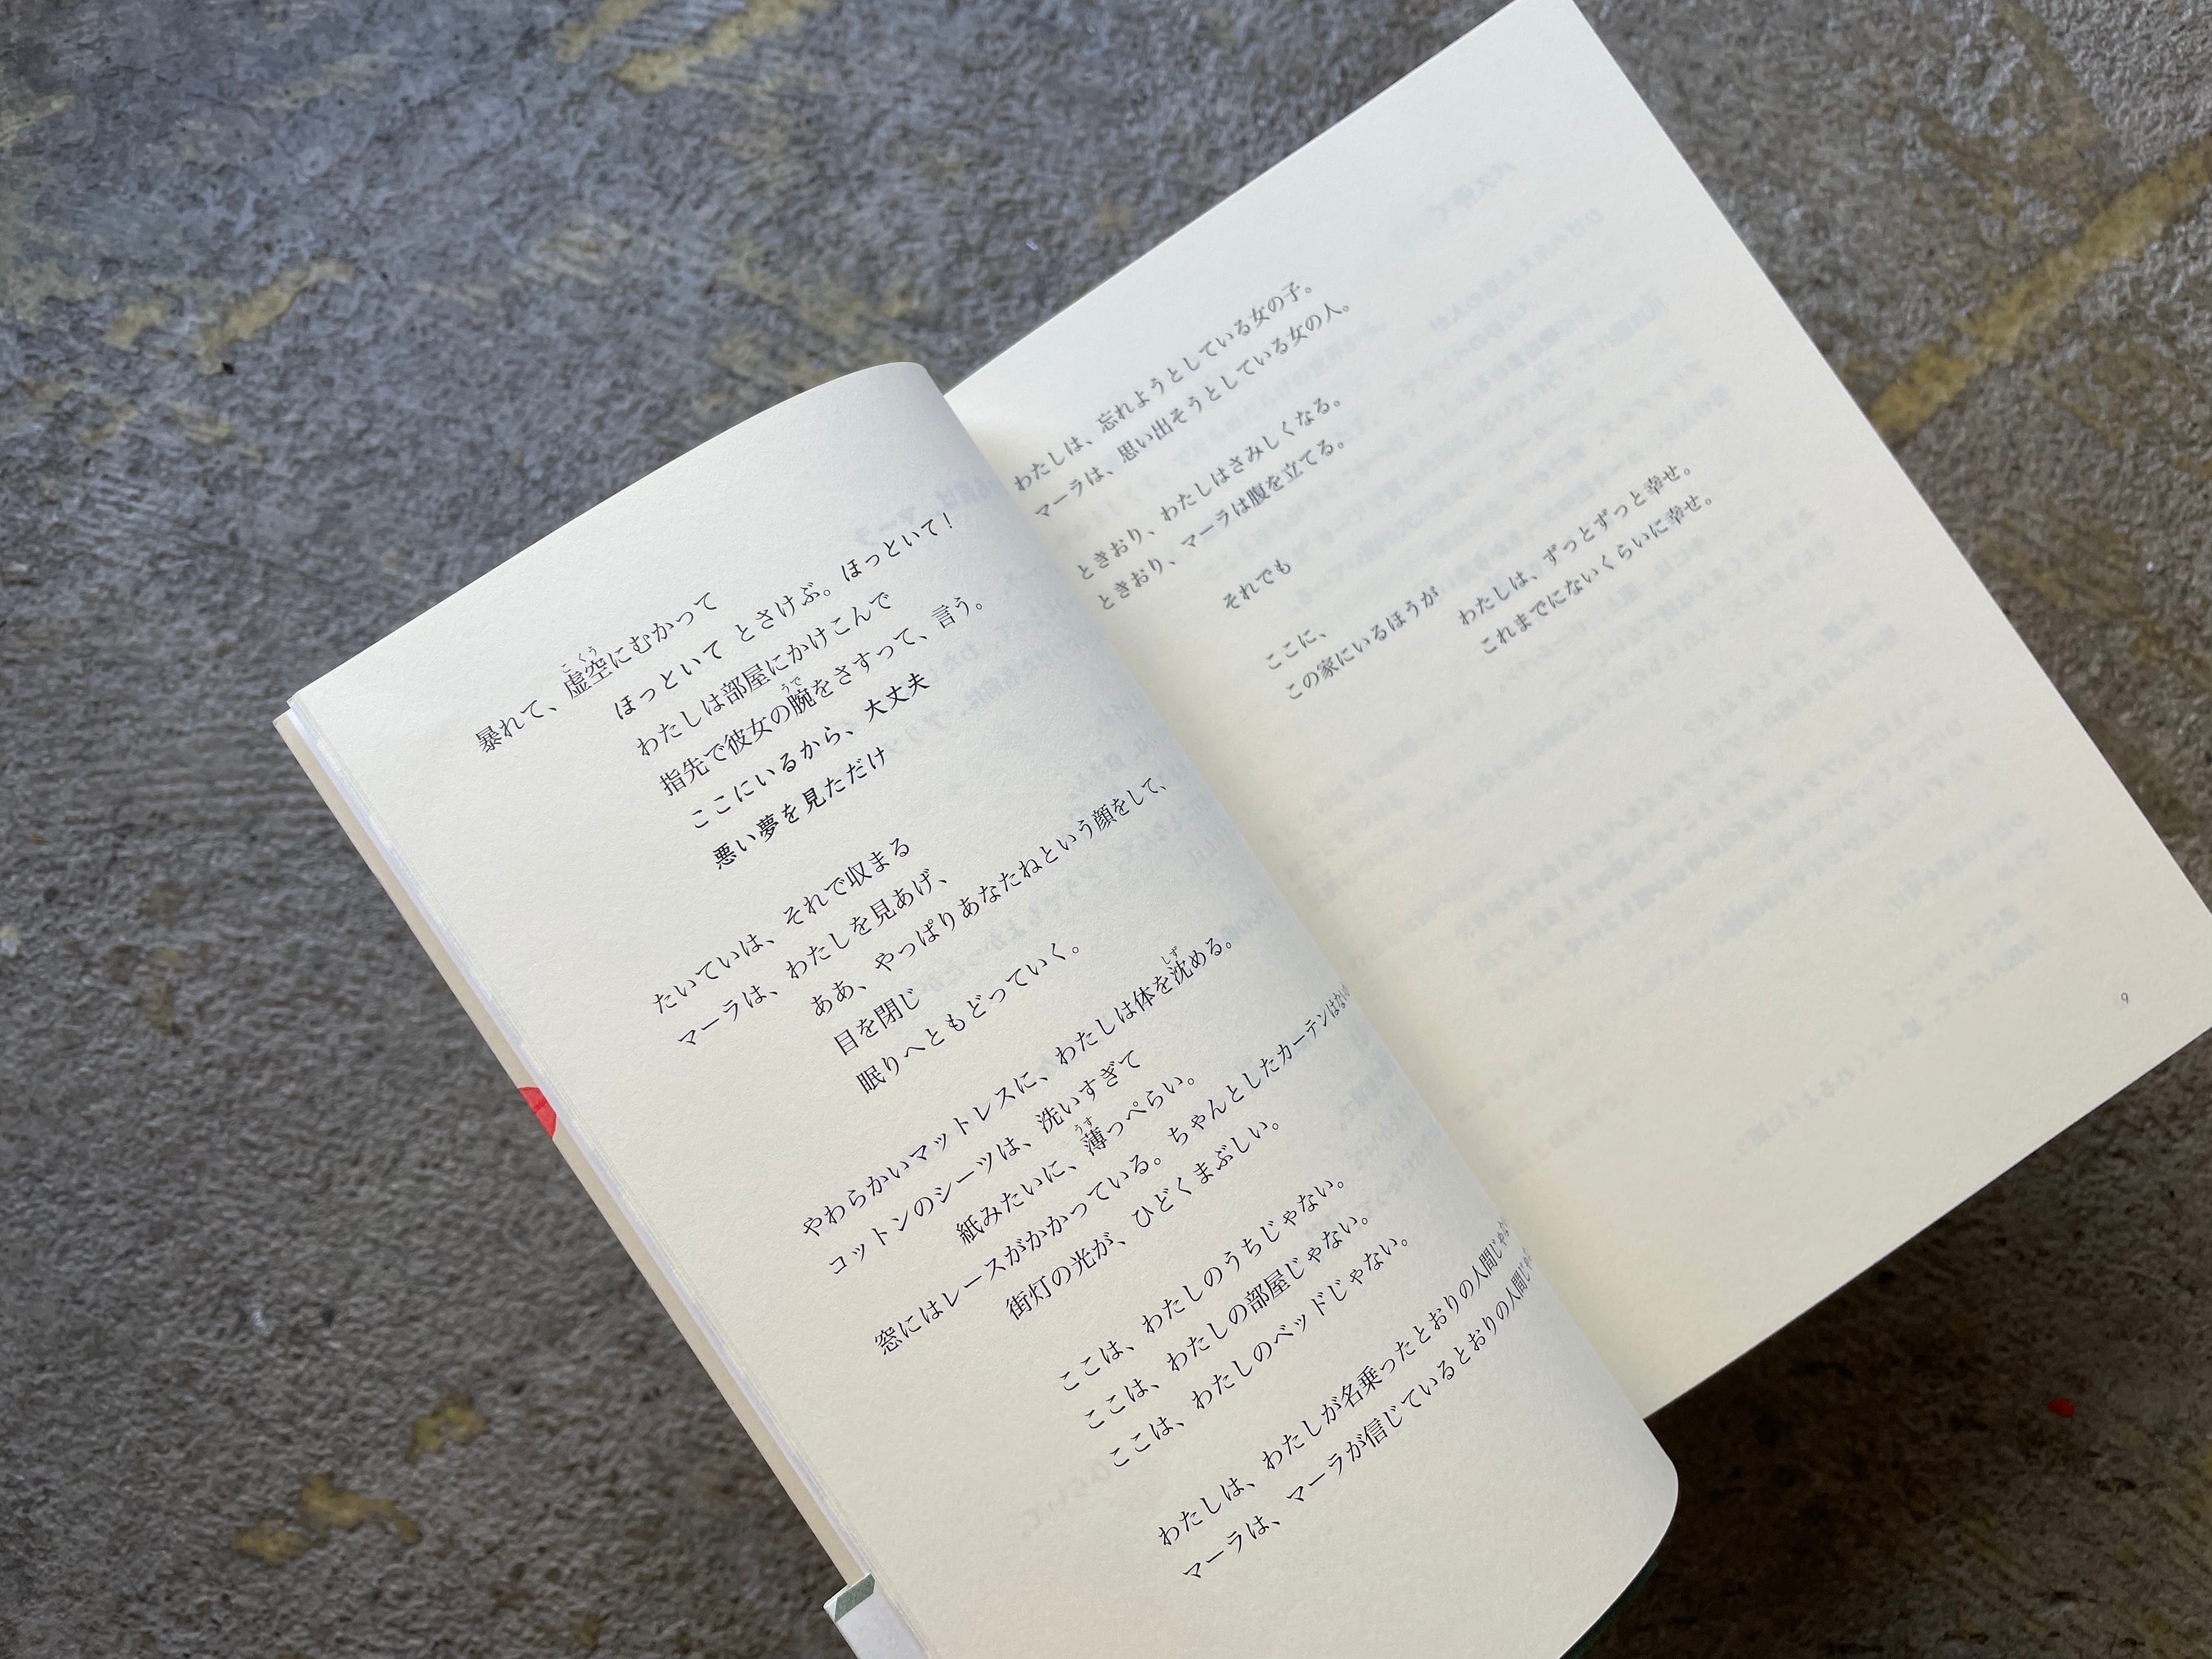 暴れて、虚空にむかって
ほっといて とさけぶ。 ほっといて！
わたしは部屋にかけこんで
指先で彼女の腕をさすって、言う。
ここにいるから、大丈夫
悪い夢を見ただけ
たいていは、それで収まる
マーラは、わたしを見あげ、
ああ、やっぱりあなたねという顔をして、
目を閉じ
眠りへともどっていく。
やわらかいマットレスに、わたしは体を沈める。
コットンのシーツは、洗いすぎて
紙みたいに、薄っぺらい。
窓にはレースがかかっている。ちゃんとしたカーテンはない
街灯の光が、ひどくまぶしい。
ここは、わたしのうちじゃない。
ここは、わたしの部屋じゃない。
ここは、わたしのベッドじゃない。
わたしは、わたしが名乗ったとおりの人間じゃ
マーラは、マーラが信じているとおりの人間じゃ
わたしは、忘れようとしている女の子。
マーラは、思い出そうとしている女の人。
ときおり、わたしはさみしくなる。
ときおり、マーラは腹を立てる。
それでも
ここに、
この家にいるほうが
わたしは、ずっとずっと幸せ。
これまでにないくらいに幸せ。
9